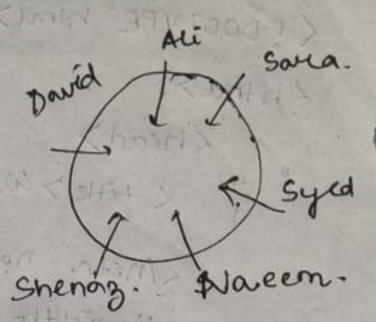 Ali
Sara.
David
Syed
Shenaz.
Naeem.